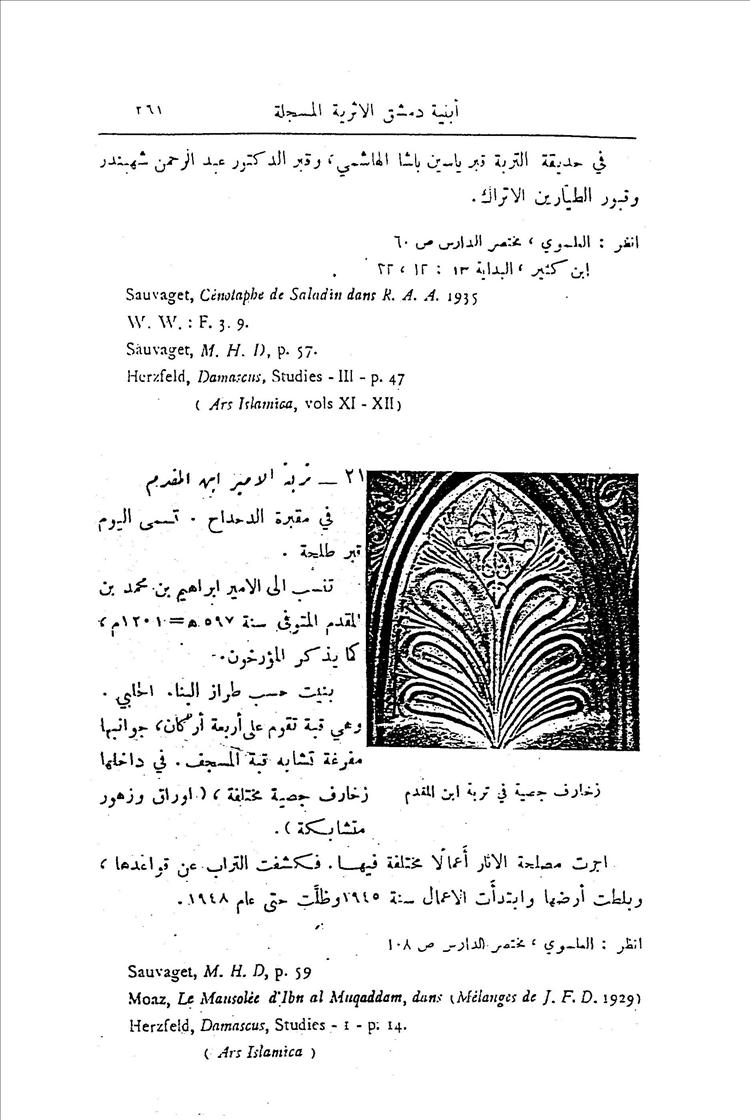 أبنية دمشق الاثرية المسجلة ٢٦١
في حديقة التربة قبر ياسين باشا الهاشمي، وقبر الدكتور عبد الرحمن شهبندر
وقبور الطيّارين الاتراك.
انظر : العلموي ، مختصر الدارس ص ٦٠
ابن كثير ، البداية ١٣ : ١٢ ، ٢٢
Sauvaget, Cénotaphe de Saladin dans R. A. A. 1935
W. W. : F. 3. 9.
Sauvaget, M. H. D, p. 57.
Herzfeld, Damascus, Studies - III - p. 47
( Ars Islamica, vols XI - XII)
٢١ — تربة الامير ابن المقدم
في مقبرة الدحداح . تسمى اليوم
قبر طلحة .
تنسب الى الامير ابراهيم بن محمد بن
المقدم المتوفى سنة ٥٩٧ هـ=١٢٠١م،
كما يذكر المؤرخون.
بنيت حسب طراز البناء الحلبي .
وهي قبة تقوم على أربعة أركان، جوانبها
مفرغة تشابه قبة المسجف. في داخلها
زخارف جصية مختلفة ، (اوراق وزهور
متشابكة ).
زخارف جصية في تربة ابن المقدم
اجرت مصلحة الاثار أعمالًا مختلفة فيهـا. فكشفت التراب عن قواعدها ،
وبلطت أرضها وابتدأت الاعمال سنة ١٩٤٥ وظلَّت حتى عام ١٩٤٨.
انظر : العلموي ، مختصر الدارس ص ١٠٨
Sauvaget, M. H. D, p. 59
Moaz, Le Mausolée d'Ibn al Muqaddam, dans (Mélanges de J. F. D. 1929)
Herzfeld, Damascus, Studies - I - p. 14.
( Ars Islamica )